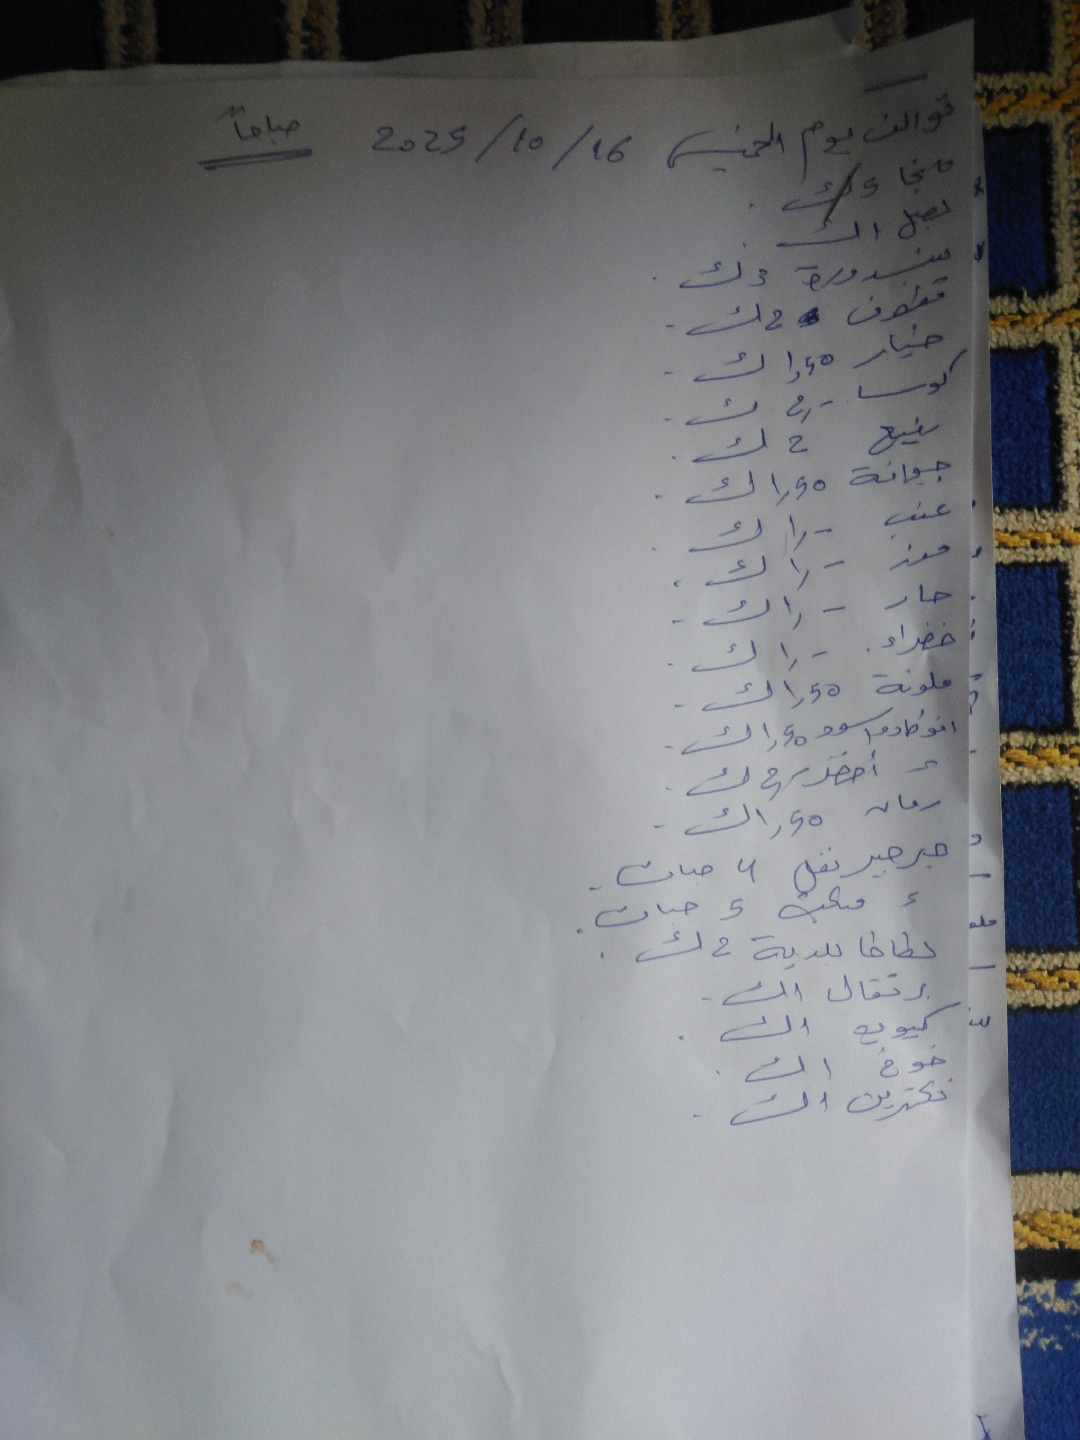 توالف يوم الخميس 16/10/2025 صباحاً
منجا 5 ك
بصل 1 ك
بندورة 3 ك
2 ك
خيار 1,50 ك
كوسا 2,- ك
2 ك
جوافة 1,50 ك
عنب 1,- ك
موز 1,- ك
حار 1,- ك
خضراء 1,- ك
ملونة 1,50 ك
افوكادو اسود 1,50 ك
ء أخضر 2,- ك
رمان 1,50 ك
جرجير نفل 4 حبات
ء 5 حبات
بطاطا بلدية 2 ك
برتقال 1 ك
كيوي 1 ك
خوخ 1 ك
نكترين 1 ك